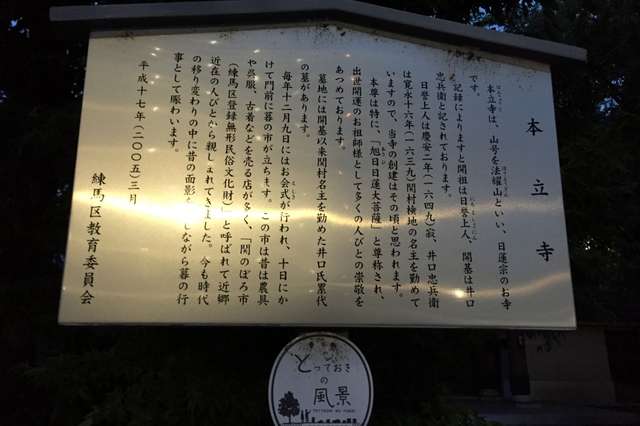 本立寺
本立寺は、山号を法耀山といい、日蓮宗のお寺
です。
記録によりますと開祖は日誉上人、開基は井口
忠兵衛と記されております。
日誉上人は慶安二年(一六四九)寂、井口忠兵衛
は寛永十六年(一六三九)関村検地の名主を勤めて
いますので、当寺の創建はその頃と思われます。
本尊は特に、「旭日日蓮大菩薩」と尊称され、
出世開運のお祖師様として多くの人びとの崇敬を
あつめております。
墓地には開基以来関村名主を勤めた井口氏累代
の墓があります。
毎年十二月九日にはお会式が行われ、十日にか
けて門前に暮の市が立ちます。この市は昔は農具
や呉服、古着などを売る店が多く、「関のぼろ市
(練馬区登録無形民俗文化財)」と呼ばれて近郷
近在の人びとから親しまれてきました。今も時代
の移り変わりの中に昔の面影を しながら暮の行
事として賑わいます。
平成十七年(二〇〇五)三月
練馬区教育委員会
とっておき
の
風景